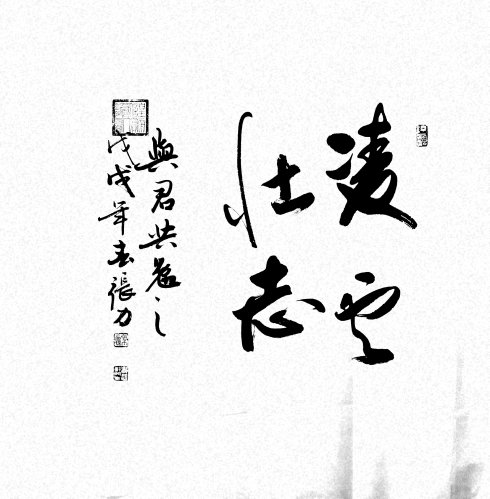 凌云
壮志
與君共勉之
戊戌年春張力